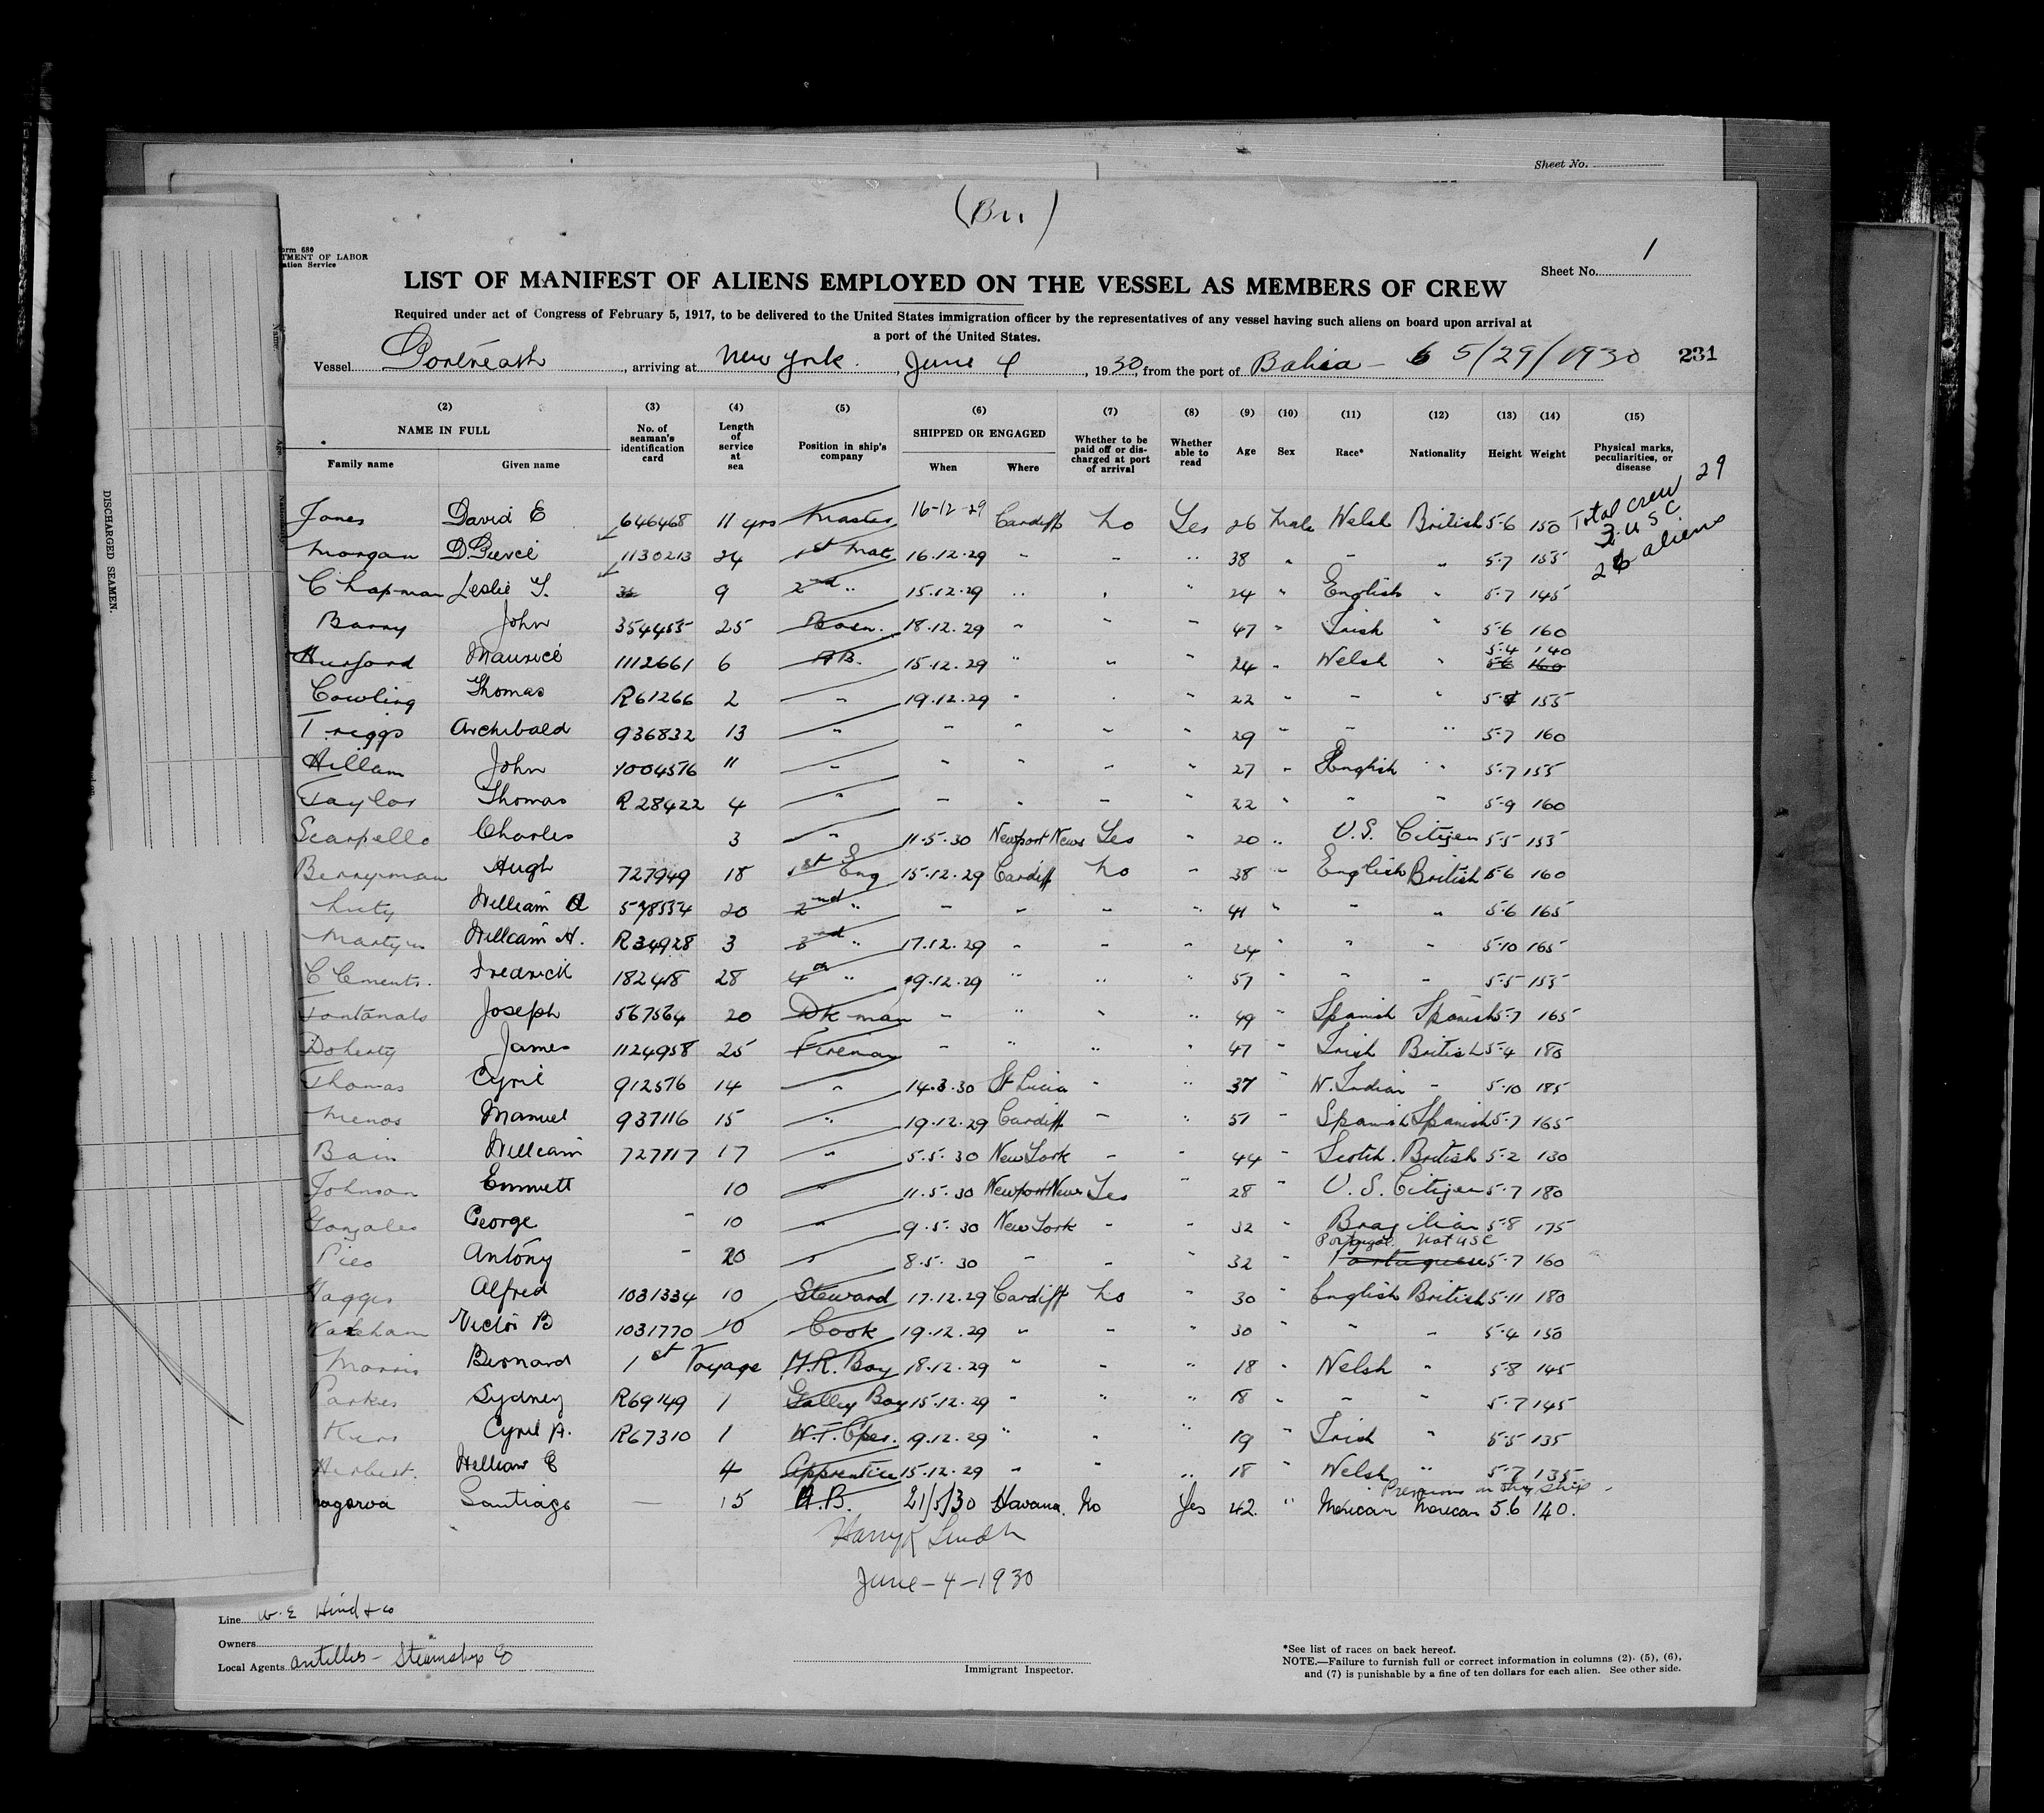 Sheet No.
(Bu)
Form 689
TMENT OF LABOR
ation Service
Sheet No. 1
LIST OF MANIFEST OF ALIENS EMPLOYED ON THE VESSEL AS MEMBERS OF CREW
Required under act of Congress of February 5, 1917, to be delivered to the United States immigration officer by the representatives of any vessel having such aliens on board upon arrival at
a port of the United States.
Vessel, arriving at New York, June 4, 1930, from the port of Bahia - 5/29/1930 231
(2) (3) (4) (5) (6) (7) (8) (9) (10) (11) (12) (13) (14) (15)
NAME IN FULL No. of seaman's identification card Length of service at sea Position in ship's company SHIPPED OR ENGAGED Whether to be paid off or discharged at port of arrival Whether able to read Age Sex Race* Nationality Height Weight Physical marks, peculiarities, or disease
Family name Given name When Where
DISCHARGED SEAMEN.
Total crew 29
3 USC
26 aliens
Jones David E 646468 11 yrs Master 16-12-29 Cardiff No Yes 26 Male Welsh British 5-6 150
Morgan D 1130213 24 1st Mate 16.12.29 " " " 38 " " " 5-7 155
Chapman Leslie T. 9 2nd " 15.12.29 " " " 24 " English " 5-7 145
Barry John 354455 25 Bosn. 18.12.29 " " " 47 " Irish " 5-6 160
Hurford Maurice 1112661 6 A.B. 15.12.29 " " " 24 " Welsh " 5-4 140
Cowling Thomas R61266 2 " 19.12.29 " " " 22 " " " 155
Triggs Archibald 936832 13 " " " " " 29 " " " 5-7 160
Hillam John 1004576 11 " " " " " 27 " English " 5-7 155
Taylor Thomas R28422 4 " " " " " 22 " " " 5-9 160
Scarpello Charles 3 " 11.5.30 Newport News Yes " 20 " U.S. Citizen 5-5 155
Berryman Hugh 727949 18 1st Eng 15.12.29 Cardiff No " 38 " English British 5-6 160
William A 578554 20 2nd " " " " " 41 " " " 5-6 165
Martyn William H. R34928 3 3rd " 17.12.29 " " " 24 " " " 5-10 165
Clements. Fredrick 182418 28 4th " 19.12.29 " " " 57 " " " 5-5 155
Fontanals Joseph 567564 20 Dk-man " " " " 49 " Spanish Spanish 5-7 165
Doherty James 1124958 25 Fireman " " " " 47 " Irish British 5-4 180
Thomas Cyril 912576 14 " 14.3.30 St Lucia " " 37 " W. Indian " 5-10 185
Menos Manuel 937116 15 " 19.12.29 Cardiff " " 51 " Spanish Spanish 5-7 165
Bain William 727117 17 " 5.5.30 New York " " 44 " Scotch British 5-2 130
Johnson Emmett 10 " 11.5.30 Newport News Yes " 28 " U.S. Citizen 5-7 180
Gonzales George - 10 " 9.5.30 New York " " 32 " Brazilian 5-8 175
Portugal Not USC
Pico Antony - 20 " 8.5.30 " " " 32 " Portuguese 5-7 160
Hagges Alfred 1031334 10 Steward 17.12.29 Cardiff No " 30 " English British 5-11 180
Wakeham Victor B 1031770 10 Cook 19.12.29 " " " 30 " " " 5-4 150
Morris Bernard 1st Voyage M.R. Boy 18.12.29 " " " 18 " Welsh " 5-8 145
Parkes Sydney R69149 1 Galley Boy 15.12.29 " " " 18 " " " 5-7 145
Cyril A. R67310 1 W.T. Oper. 19.12.29 " " " 19 " Irish " 5-5 135
Herbert. William E 4 Apprentice 15.12.29 " " " 18 " Welsh " 5-7 135
Santiago — 15 A.B. 21/5/30 Havana. No Yes 42. " Mexican Mexican 5.6 140.
Harry K Lindh
June-4-1930
Line W.E. Hind & Co
Owners
Local Agents Antilles - Steamship Co
Immigrant Inspector.
*See list of races on back hereof.
NOTE.—Failure to furnish full or correct information in columns (2), (5), (6),
and (7) is punishable by a fine of ten dollars for each alien. See other side.